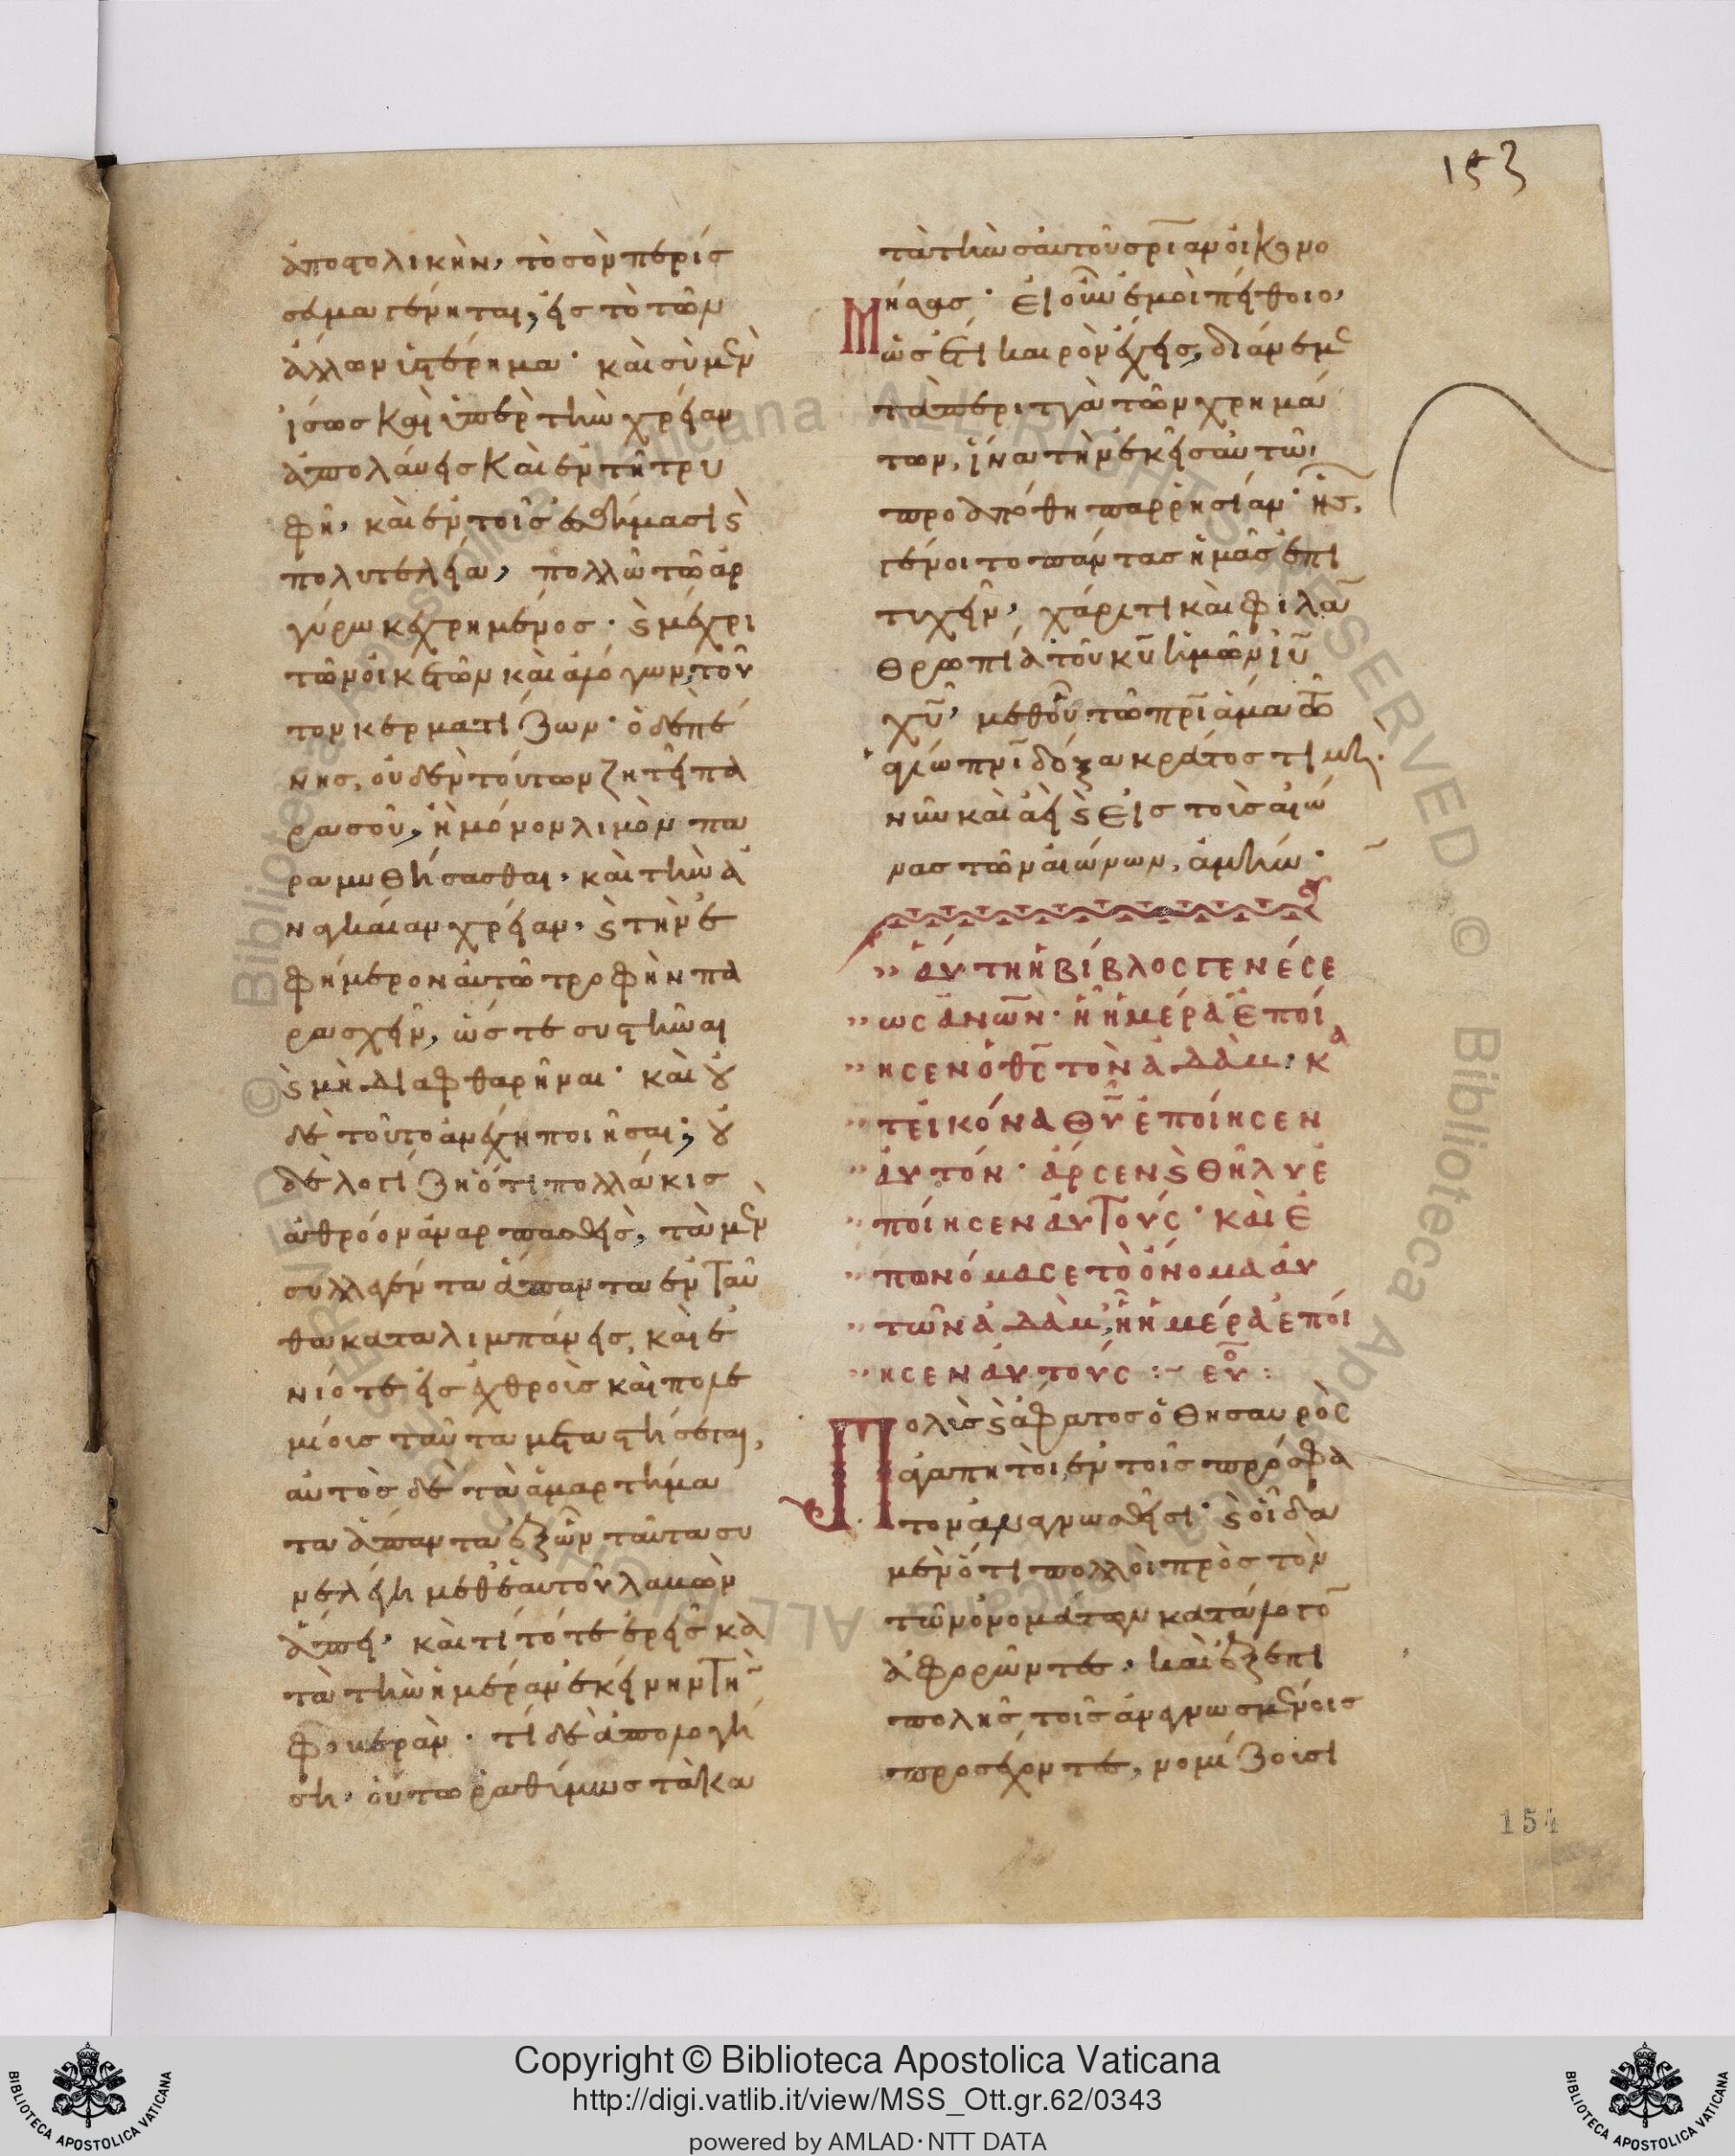 153
ἀποστολικὴν, τὸ σὸν περίσ
σευμα γένηται, εἰς τὸ τῶν
ἄλλων ὑστέρημα· καὶ σὺ μὲν
ἴσως καὶ ὑπὲρ τὴν χρείαν
ἀπολαύεις καὶ ἐν τῆ τρυ
φῆ, καὶ ἐν τοῖς ἐσθήμασι ϗ
πολυτελεία, πολλῶ τῶ ἀρ
γύρω κεχρημένος· ϗ μέχρι
τῶν οἰκετῶν καὶ ἀλόγων, τοῦ
τον κερματίζων· ὁ δὲ πέ
νης, οὐδὲν τούτων ζητεῖ πα
ρὰ σοῦ, ἢ μόνον λιμὸν πα
ραμυθήσασθαι, καὶ τὴν ἀ
ναγκαίαν χρείαν, ϗ τὴν ἐ
φήμερον αὐτῶ τροφὴν πα
ρασχεῖν, ὥστε συστῆναι
ϗ μὴ διαφθαρῆναι· καὶ οὐ
δὲ τοῦτο ἀνέχη ποιῆσαι; οὐ
δὲ λογίζη ὅτι πολλάκις
ἀθρόον ἀναρπασθεὶς, τὰ μὲν
συλλεγέντα ἅπαντα ἐνταῦ
θα καταλιμπάνεις, καὶ ἐ
νίοτε εἰς ἐχθροὺς καὶ πολε
μίους ταῦτα μεταστήσεται,
αὐτὸς δὲ τὰ ἁμαρτήμα
τα ἅπαντα ἐξ ὧν ταῦτα συ
νελέγη μεθ' ἑαυτοῦ λαβὼν
ἄπει· καὶ τί τότε ἐρεῖς κα
τὰ τὴν ἡμέραν ἐκείνην τὴν
φοβεράν· τί δὲ ἀπολογή
ση, οὕτω ῥαθύμως τὰ κα
τὰ τὴν σαυτοῦ σρίαν οἰκονο
μήσας· Εἰ οὖν ἐμοὶ πείθοιο,
ὡς ἔτι καιρὸν ἔχεις, διάνειμε
τὰ περιττὰ τῶν χρημά
των, ἵνα τὴν ἐκεῖσε αὐτῶ
προαπόθη παρρησίαν· ἧς
γένοιτο πάντας ἡμᾶς ἐπι
τυχεῖν, χάριτι καὶ φιλαν
θρωπία τοῦ κυ ἡμῶν ιυ
χυ, μεθ' οὗ τῶ πρι ἅμα τῶ
ἁγίω πνι δόξα κράτος τιμὴ,
νῦν καὶ ἀεὶ ϗ εἰς τοὺς αἰῶ
νας τῶν αἰώνων, ἀμήν·
ΑὕΤΗ Ἡ ΒΊΒΛΟΣ ΓΕΝΈΣΕ
ΩΣ ΑΝΩΝ· ᾗ ἩΜΈΡΑ ἘΠΟΊ
ΗΣΕΝ Ὁ ΘΣ ΤῸΝ ἈΔΆΜ· ΚΑ
Τ' ΕἸΚΌΝΑ ΘΥ ἘΠΟΊΗΣΕΝ
ΑὐΤΌΝ· ἌΡΣΕΝ ϗ ΘΗ͂ΛΥ Ἐ
ΠΟΊΗΣΕΝ ΑὐΤΟΎΣ· ΚΑῚ Ἐ
ΠΩΝΌΜΑΣΕ ΤῸ ὌΝΟΜΑ Αὐ
ΤΩ͂Ν ἈΔΆΜ, ᾗ ἩΜΈΡΑ ἘΠΟΊ
ΗΣΕΝ ΑὐΤΟΎΣ :~
Πολὺς ϗ ἄφατος ὁ θησαυρὸς
ἀγαπητοὶ, ἐν τοῖς πρώσφα
τον ἀναγνωσθεῖσι· ϗ οἶδα
μὲν ὅτι πολλοὶ πρὸς τὸν
τῶν ὀνομάτων κατάλογον
ἀφορῶντες, καὶ ἐξ ἐπι
πολῆς τοῖς ἀνεγνωσμένοις
προσέχοντες, νομίζουσι
154
Copyright © Biblioteca Apostolica Vaticana
http://digi.vatlib.it/view/MSS_Ott.gr.62/0343
powered by AMLAD·NTT DATA